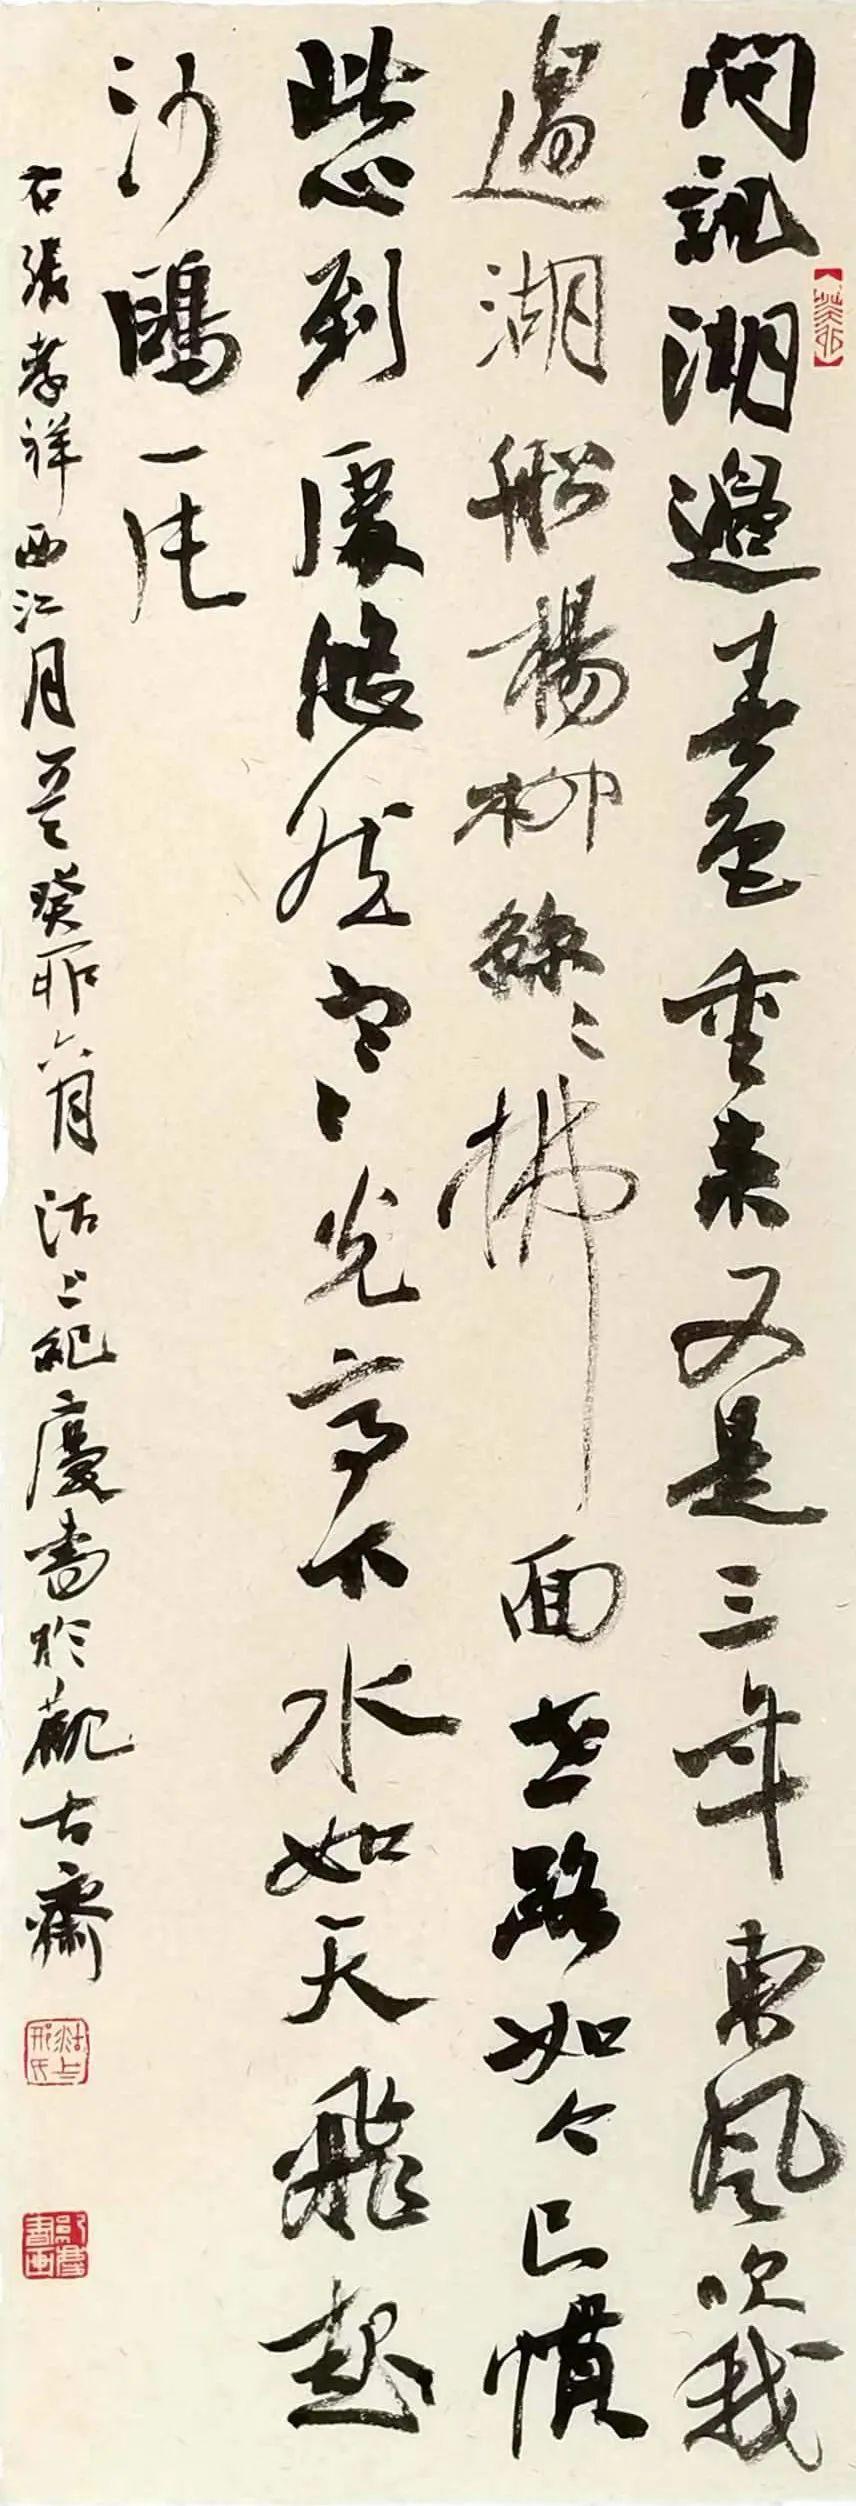 问訊湖邊春色重来又是三年東風吹我
過湖船楊柳絲〻拂面世路如今已慣
此心到處悠然寒光亭下水如天飛起
沙鷗一片
右張孝祥西江月一首癸卯六月沽上邢慶書於觀古齋